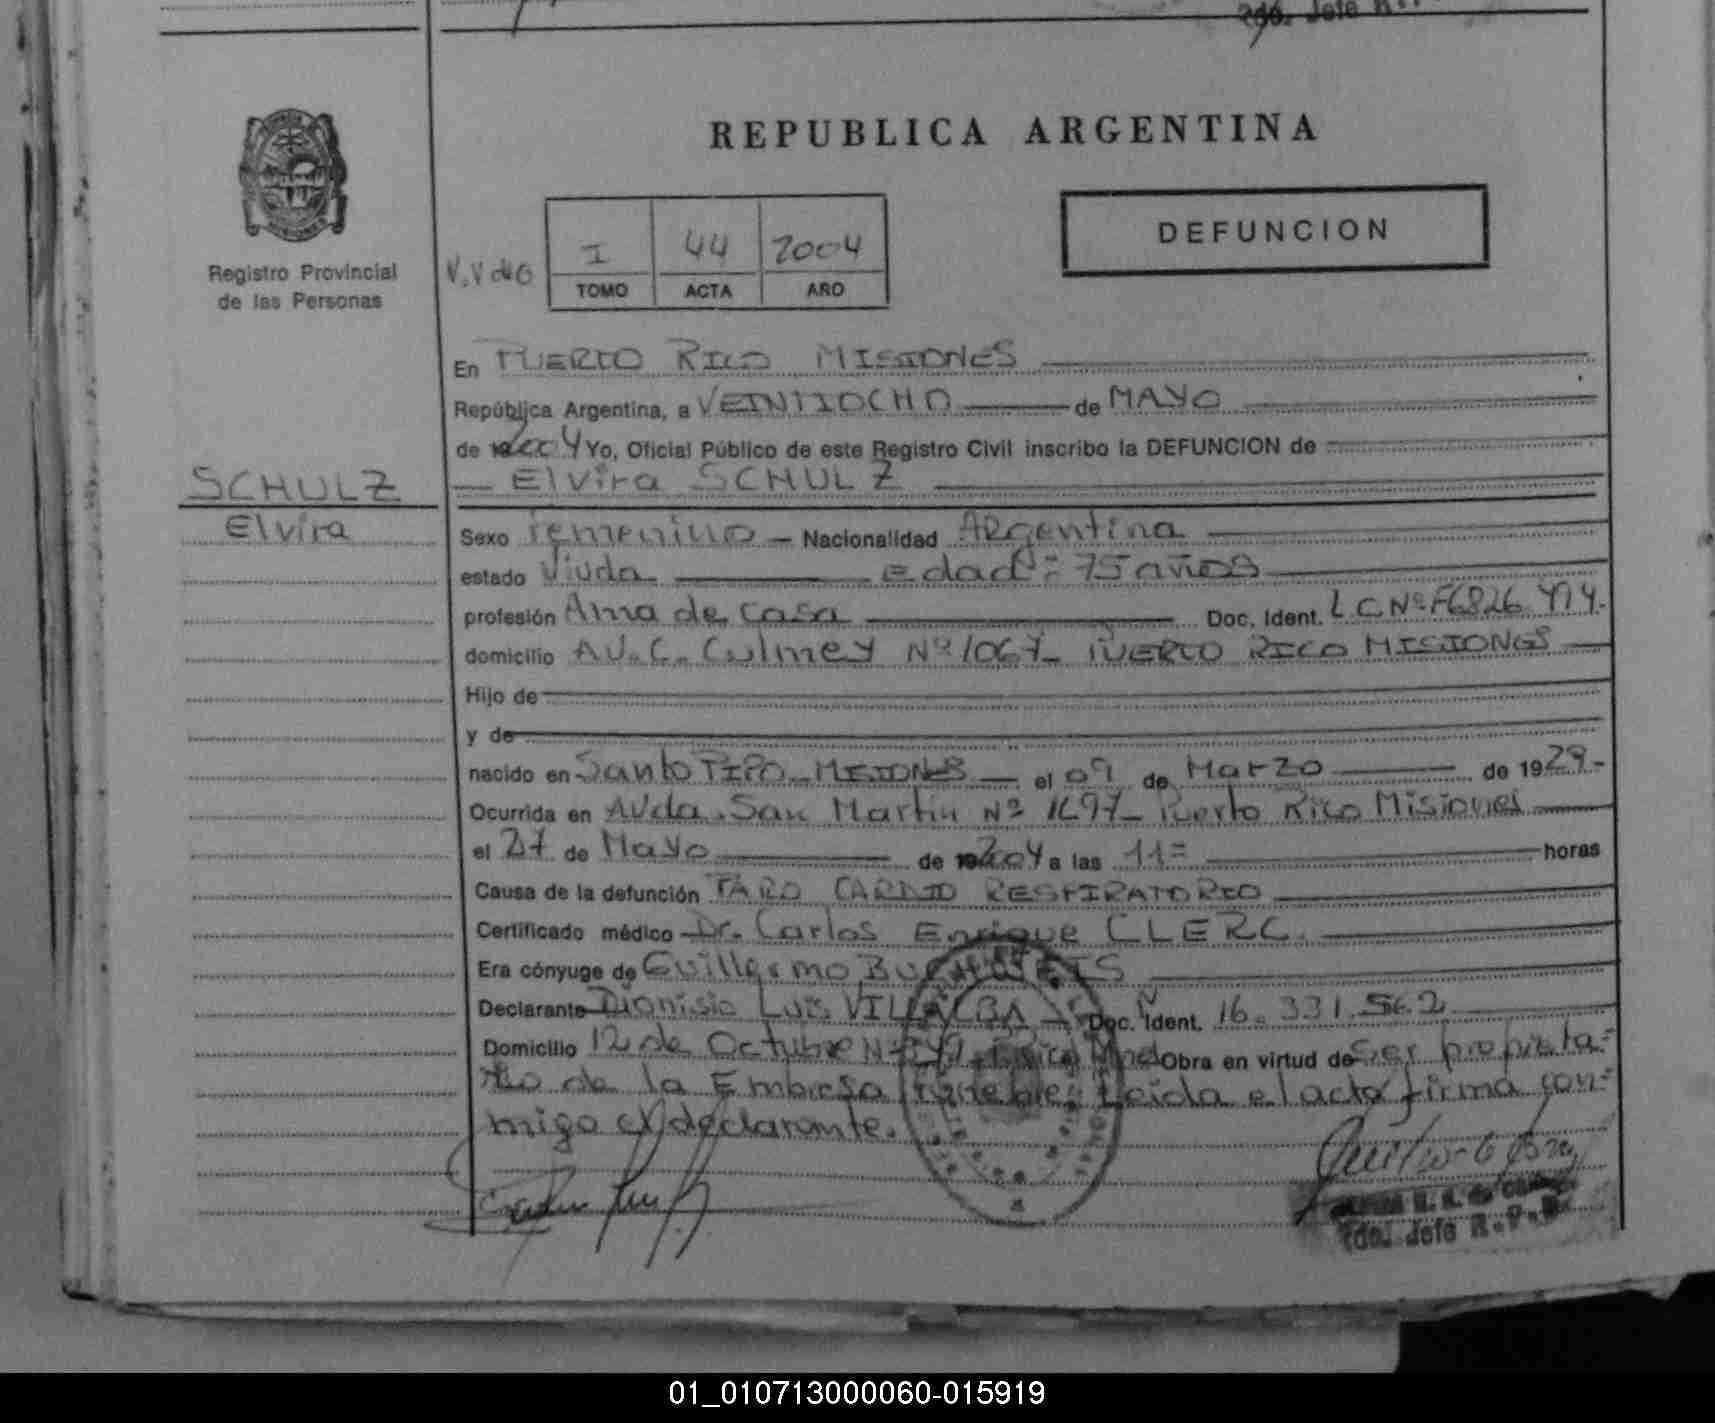 Rdo. Jefe R.
REPUBLICA ARGENTINA
DEFUNCION
Registro Provincial
de las Personas
I 44 2004
TOMO ACTA AÑO
En PUERTO RICO MISIONES
República Argentina, a VEINTIOCHO de MAYO
de 2004 Yo, Oficial Público de este Registro Civil inscribo la DEFUNCION de
Elvira SCHULZ
SCHULZ
Elvira
Sexo Femenino - Nacionalidad Argentina
estado Viuda Edad: 75 años
profesión Ama de casa Doc. Ident. LC Nº F6826
domicilio AV. C. Culmey Nº 1067- PUERTO RICO MISIONES
Hijo de
y de
nacido en Santo PIPO - MISIONES el 09 de Marzo de 1929-
Ocurrida en AVda. San Martin Nº 1697- Puerto Rico Misiones
el 27 de Mayo de 2004 a las 11= horas
Causa de la defunción PARO CARDIO RESPIRATORIO
Certificado médico Dr. Carlos Enrique CLERC.
Era cónyuge de Guillermo
Declarante Dionisio Luis VILLALBA - Doc. Ident. 16.331.562
Domicilio 12 de Octubre Nº Obra en virtud de ser propieta=
rio de la Empresa Funebre; Leida el acta firma con=
migo el declarante.
Rdo. Jefe R.P.P.
01_010713000060-015919